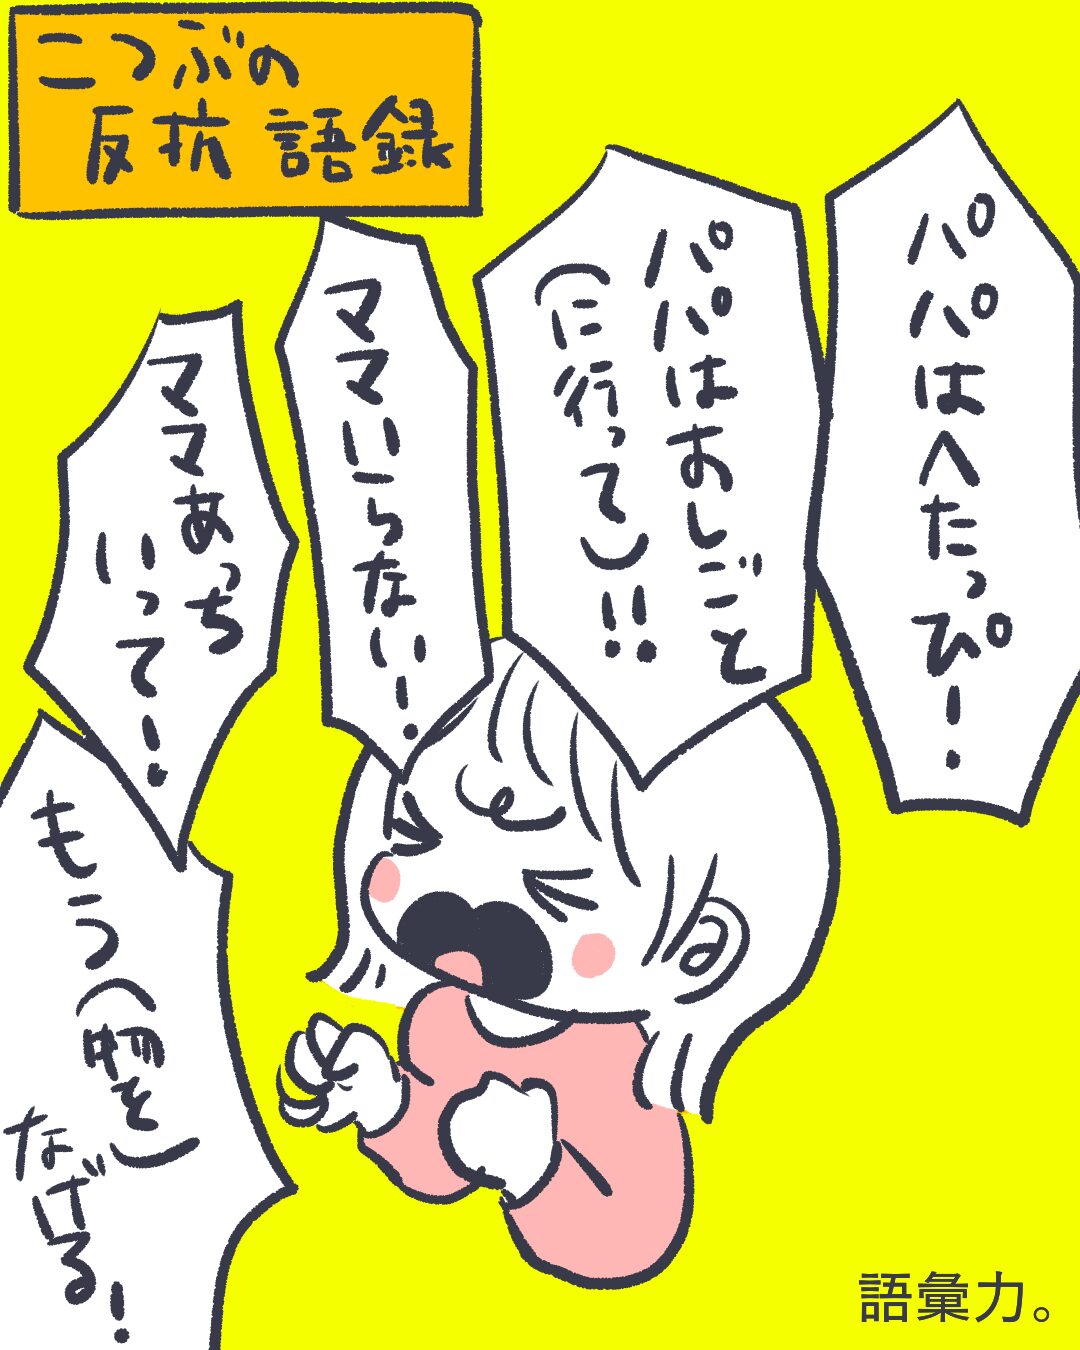 こつぶの
反抗 語録
パパはへたっぴー.
パパはおしごと
(に行って)!!
ママいらない!
ママあっち
いってー!
もう(物を)
なげる!
語彙力。